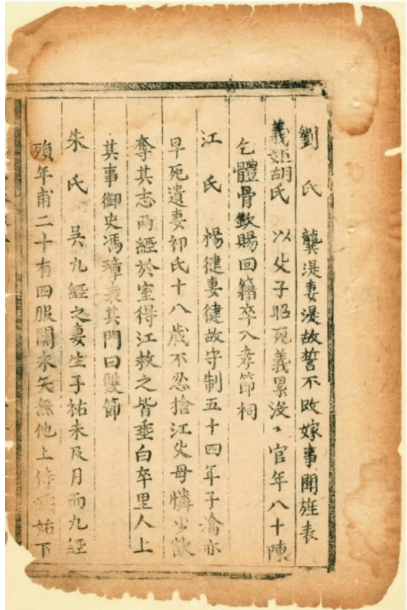 劉氏 龔湜妻湜故誓不改嫁事聞旌表
義婦胡氏 以父子昭死義累没〻官年八十陳
乞體骨欽賜回籍卒入孝節祠
江氏 楊健妻健故守制五十四年子瀹亦
早死遺妻祁氏十八歲不忍捨江父母憐少欲
奪其志而經於室得江救之皆垂白卒里人上
其事御史馮璋表其門曰雙節
朱氏 吳九經之妻生子祐未及月而九經
殞年甫二十有四服闋末矢無他上侍姑下